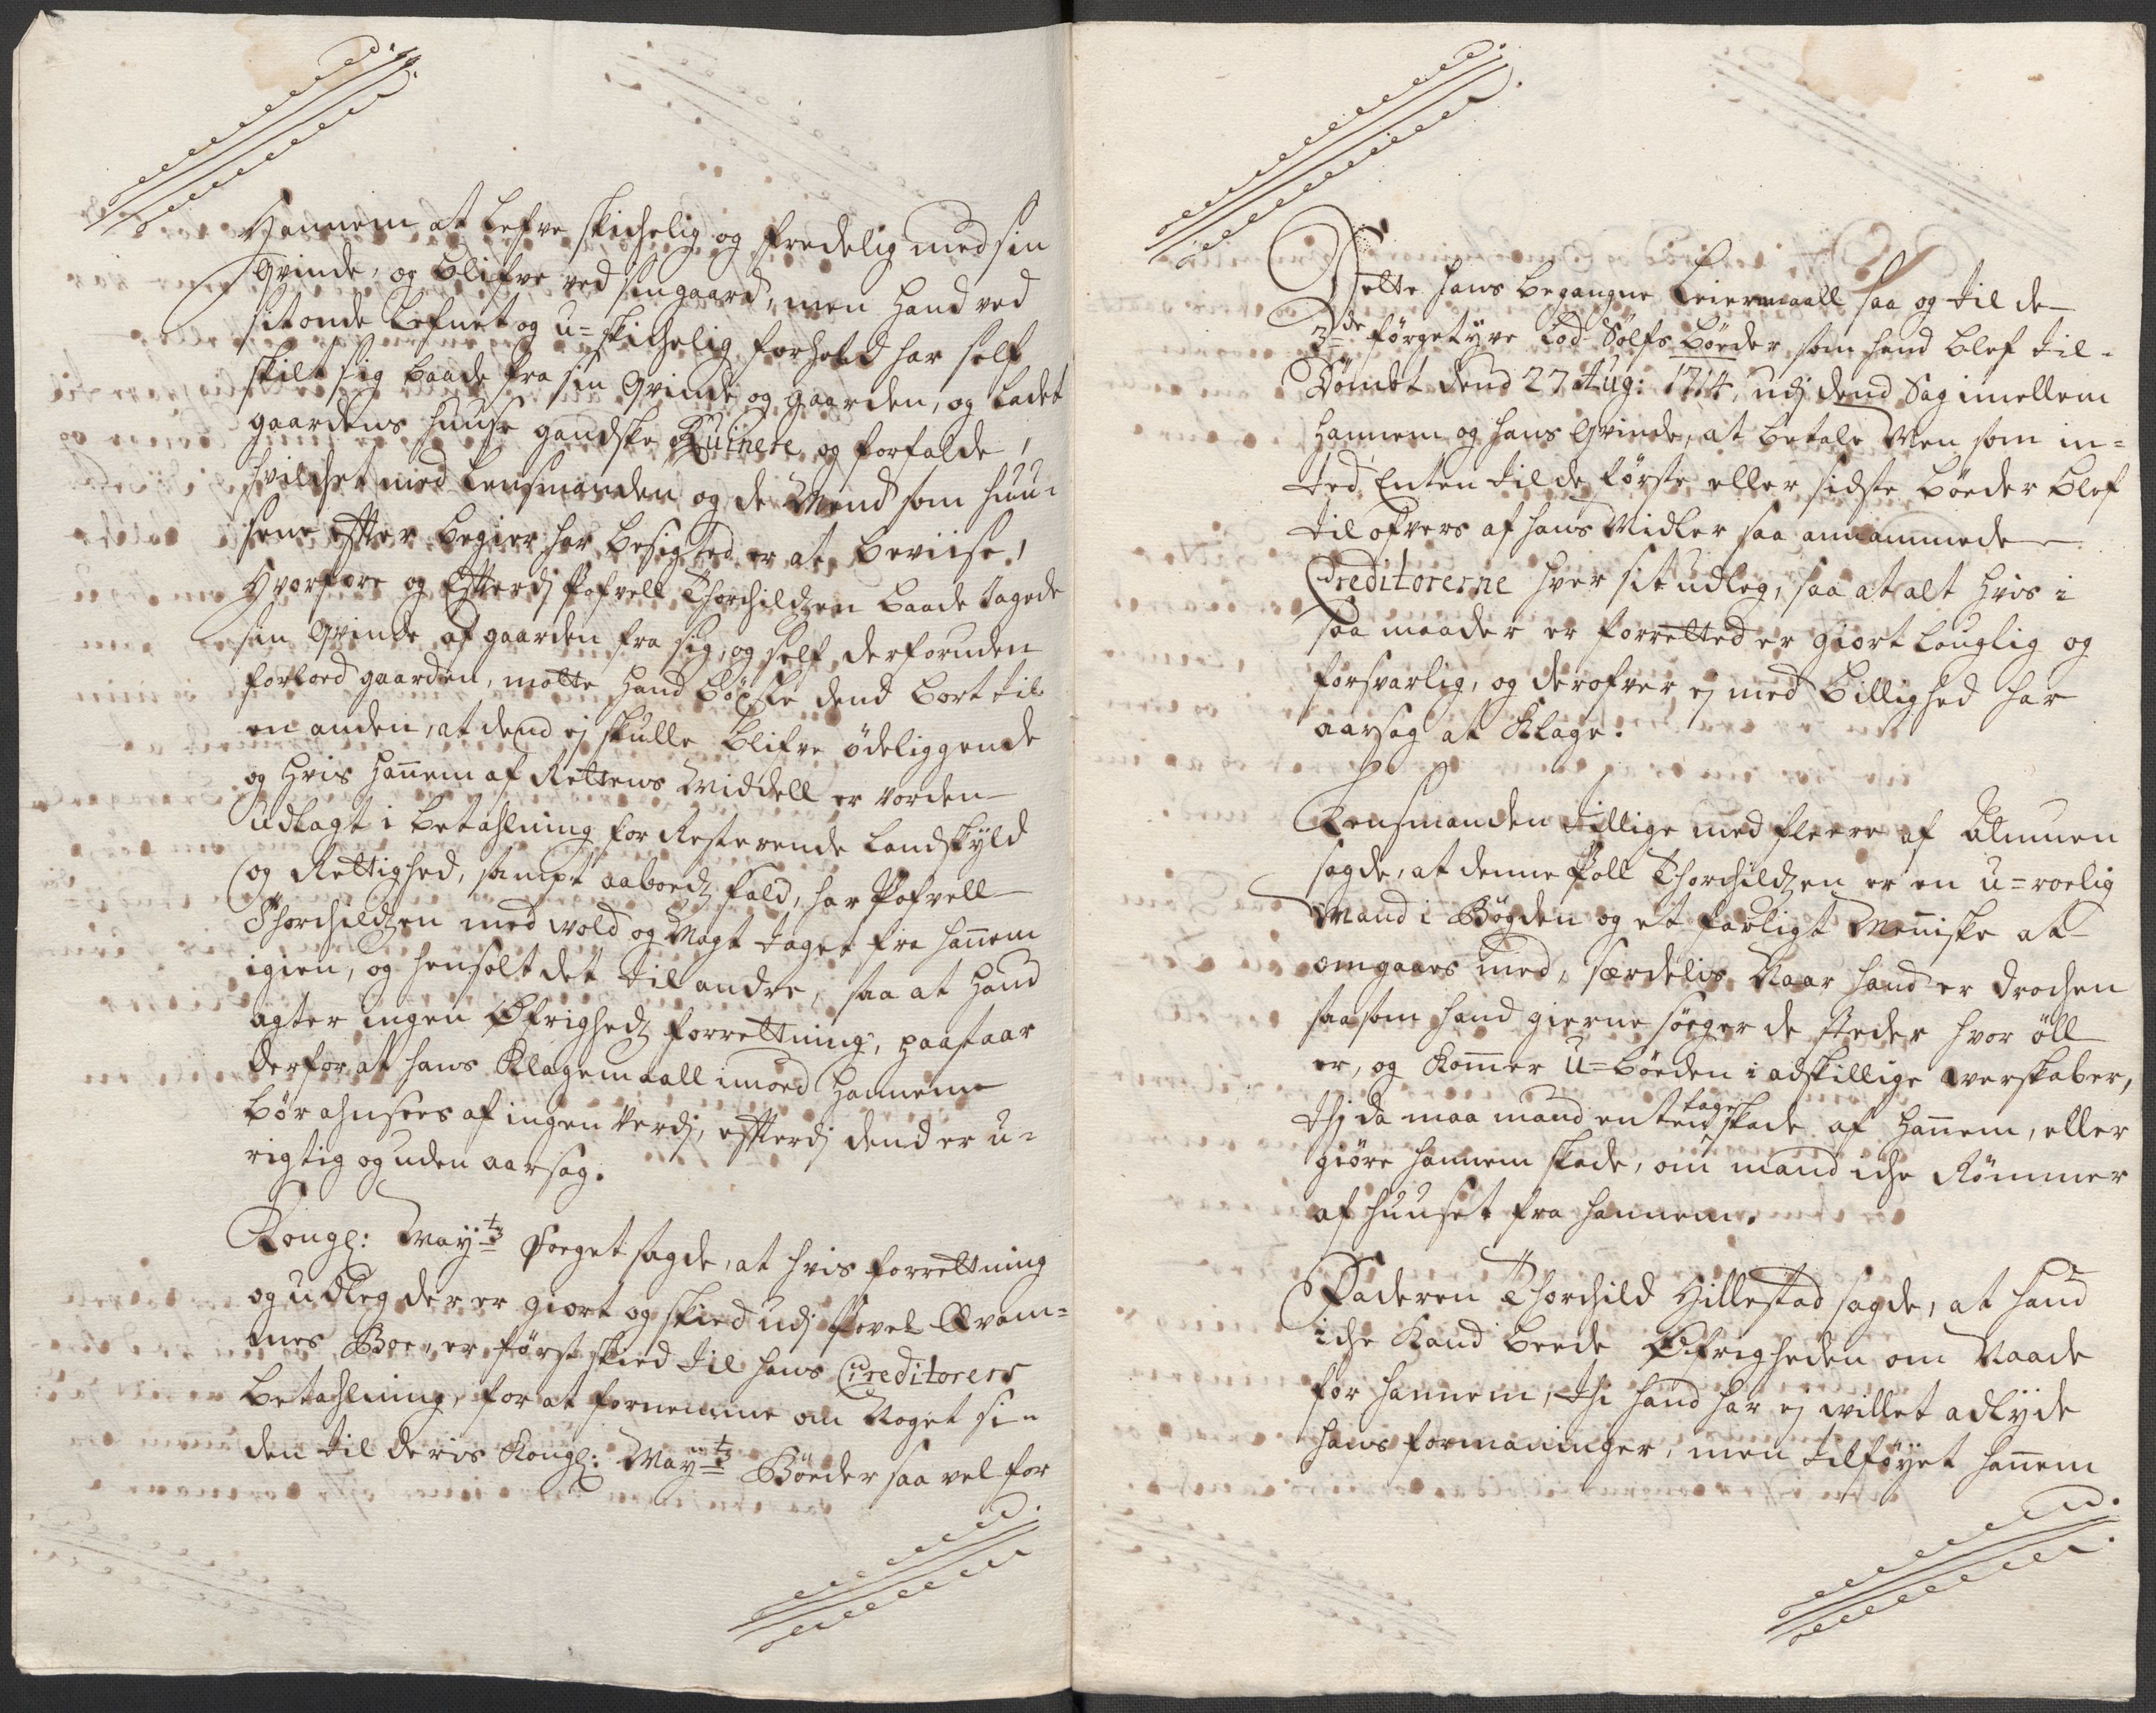 Hannem at lefve skichelig og fredelig med sin
Qvinde, og blifve ved sin gaard, men hand ved
sit onde lefnet og u=skichelig forhold har self
skilt sig baade fra sin Qvinde og gaarden, og ladet
gaardens huuse gandske Ruinere og forfalde,
hvilchet med Lensmanden og de Mend som huu-
sene efter begier har besigted er at beviise,
Hvorfore og Efterdj Pofvell Thorchildzen baade jagede
sin Qvinde af gaarden fra sig, og self derforuden
forloed gaarden, motte hand böxle dend bort til
en anden, at dend ej skulle blifve ödeliggende
og hvis hannem af Rettens Middell er vorden
udlagt i betahlning for Resterende Landskyld
og Rettighed, sampt aaboedz fald, har Pofvell
Thorchildzen med vold og Magt taget fra hannem
igien, og hensolt det til andre, saa at hand
agter ingen Øfrighedz forrettning, paastaar
derfor at hans Klagemaall imoed hannem
bör ahnsees af ingen Verdj, efterdj dend er u-
rigtig og uden aarsag.
Kongl: May:tz Foeget sagde, at hvis forrettning
og udleg der er giort og skied udj Povel Qvam-
mes Boe, er först skied til hans Creditorers
betahlning, for at fornemme om Noget si-
den til deris Kongl: May:tz Böeder saa vel for
Dette hans begangne Leiermaall saa og til de
3de förgetyve Lod Sölfs böeder som hand blef til-
Dömbt dend 27 Aug: 1714, udj dend Sag imellem
hannem og hans Qvinde, at betale Men som in-
ted Enten til de förste eller sidste böeder blef
til ofvers af hans Midler saa annammede
Creditorerne hver sit udleg, saa at alt hvis i
saa maader er forretted er giort louglig og
forsvarlig, og derofver ej med billighed har
aarsag at Klage.
Lensmanden tillige med fleere af Almuen
sagde, at denne Poll Thorchildzen er en u=roelig
Mand i Bögden og et farligt Menniske at
omgaaes med, særdelis Naar hand er drochen
saasom hand gierne söeger de steder hvor öll
er, og Kommer u=böeden i adskillige verskaber,
thj da maa mand enten tage skade af hannem, eller
giöre hannem skade, om mand iche Römmer
af huuset fra hannem.
Faderen Thorchild Hillestad sagde, at hand
iche Kand beede Øfrigheden om Naade
for hannem, thi hand har ej villet adlyde
hans formaninger, men tilföyet hannem